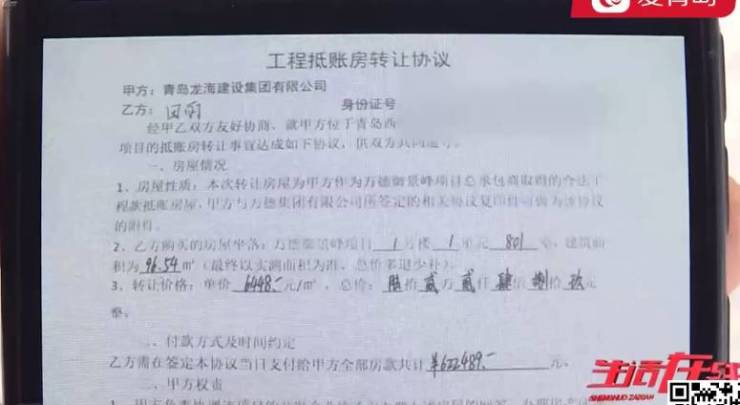 爱青岛
工程抵账房转让协议
甲方：青岛龙海建设集团有限公司
乙方： 身份证号
经甲乙双方友好协商、就甲方位于青岛西
项目的抵账房转让事宜达成如下协议，供双方共同遵守。
一、房屋情况
1、房屋性质：本次转让房屋为甲方作为万德御景峰项目总承包商取得的合法工
程款抵账房屋，甲方与万德集团有限公司所签定的相关协议复印件可做为该协议
的附件。
2、乙方购买的房屋坐落：万德御景峰项目 1 号楼 1 单元 801 室，建筑面
积为 96.54 ㎡（最终以实测面积为准、总价多退少补）。
3、转让价格：单价 6448.- 元/㎡，总价：陆拾贰万贰仟肆佰捌拾玖元
整。
二、付款方式及时间约定
乙方需在签定本协议当日支付给甲方全部房款共计 ¥622489.- 元。
二、甲方权责
生活在线
SHENGHUO ZAIXIAN